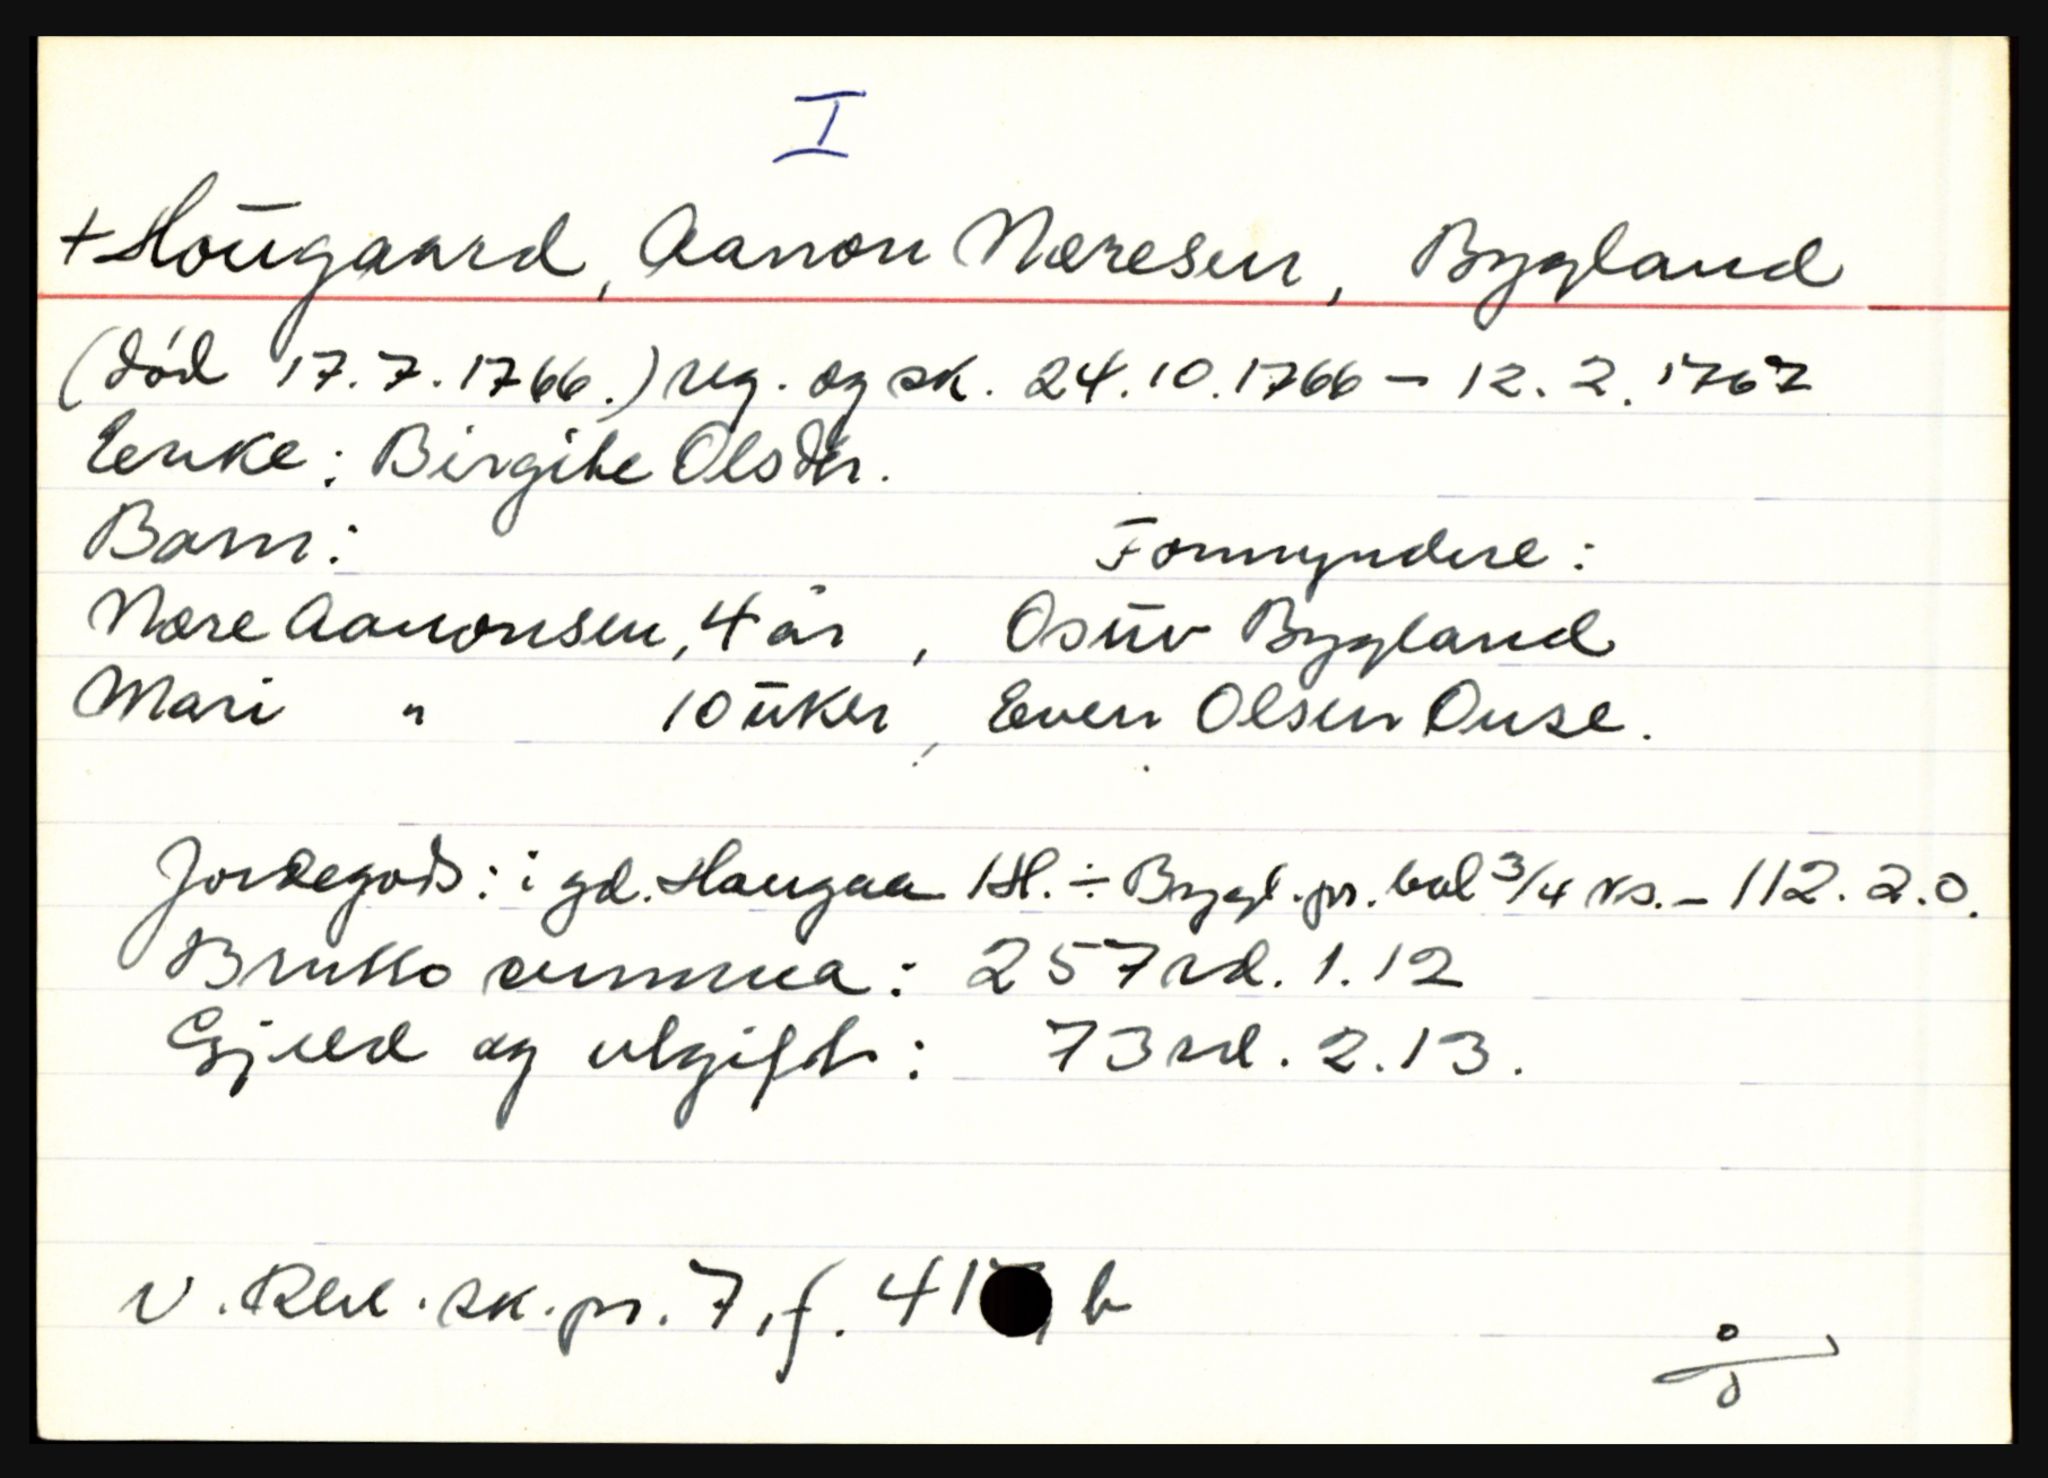 I
+ Hougaard, Aanon Næresen, Bygland
(død 17.7.1766.) reg. og sk. 24.10.1766 – 12.2.1767
Enke: Birgite Olsdtr.
Barn: Formyndere:
Nære Aanonsen, 4 år, Osuv Bygland
Mari " 10 uker, Even Olsen Ouse.
Jordegods: i gd. Haugaa 1 H. ÷ Bygl. pr. bol 3/4 ks. – 112.2.0.
Brutto summa: 257 rd. 1.12
Gjeld og utgift: 73 rd. 2.13.
V. Rbl. sk. pr. 7, f. 417, b